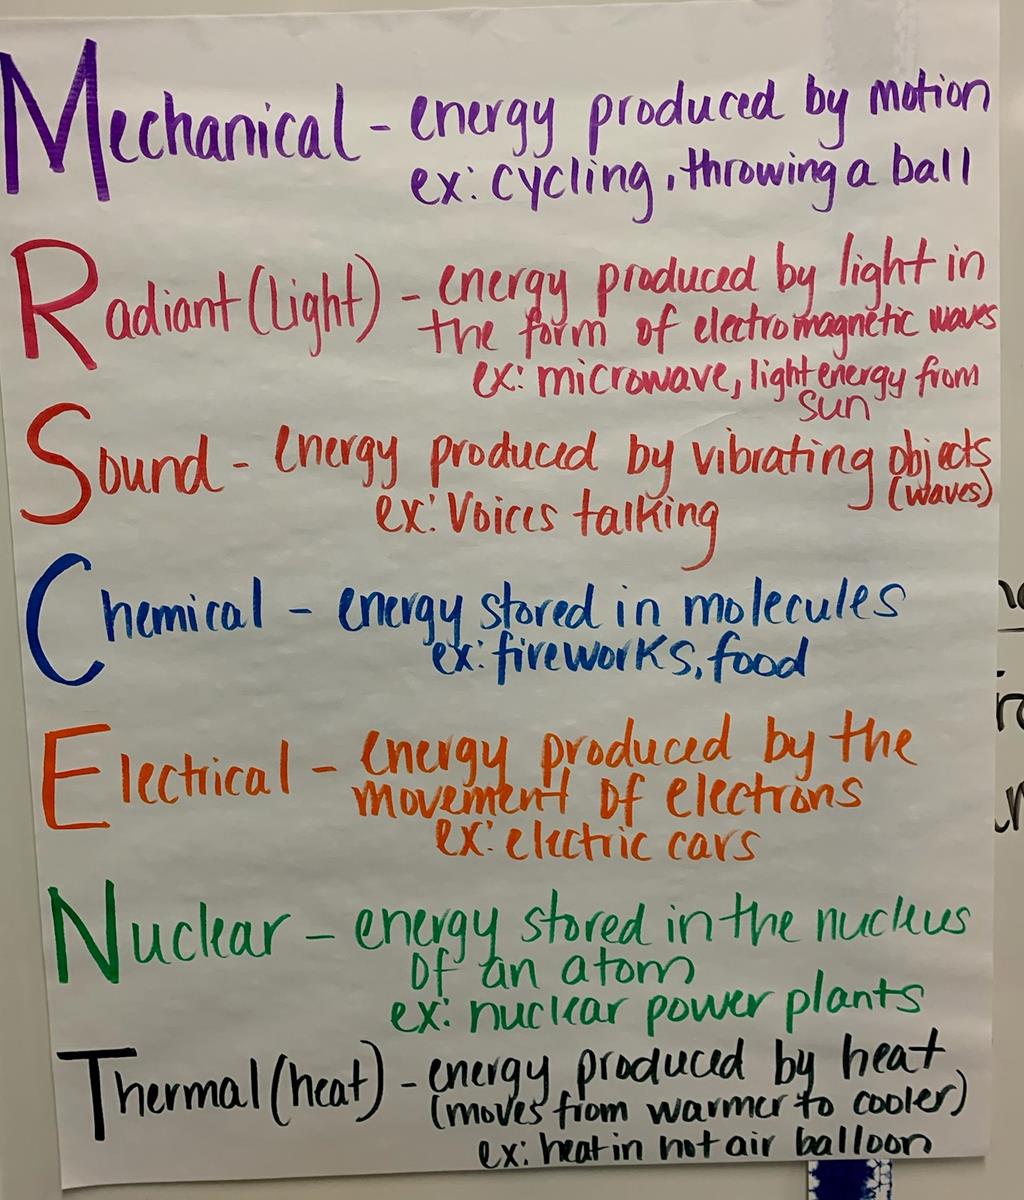 Mechanical - energy produced by motion
ex: cycling, throwing a ball
Radiant (light) - energy produced by light in
the form of electromagnetic waves
ex: microwave, light energy from
sun
Sound - energy produced by vibrating objects
(waves)
ex: Voices talking
Chemical - energy stored in molecules
ex: fireworks, food
Electrical - energy produced by the
movement of electrons
ex: electric cars
Nuclear - energy stored in the nucleus
of an atom
ex: nuclear power plants
Thermal (heat) - energy produced by heat
(moves from warmer to cooler)
ex: heat in hot air balloon